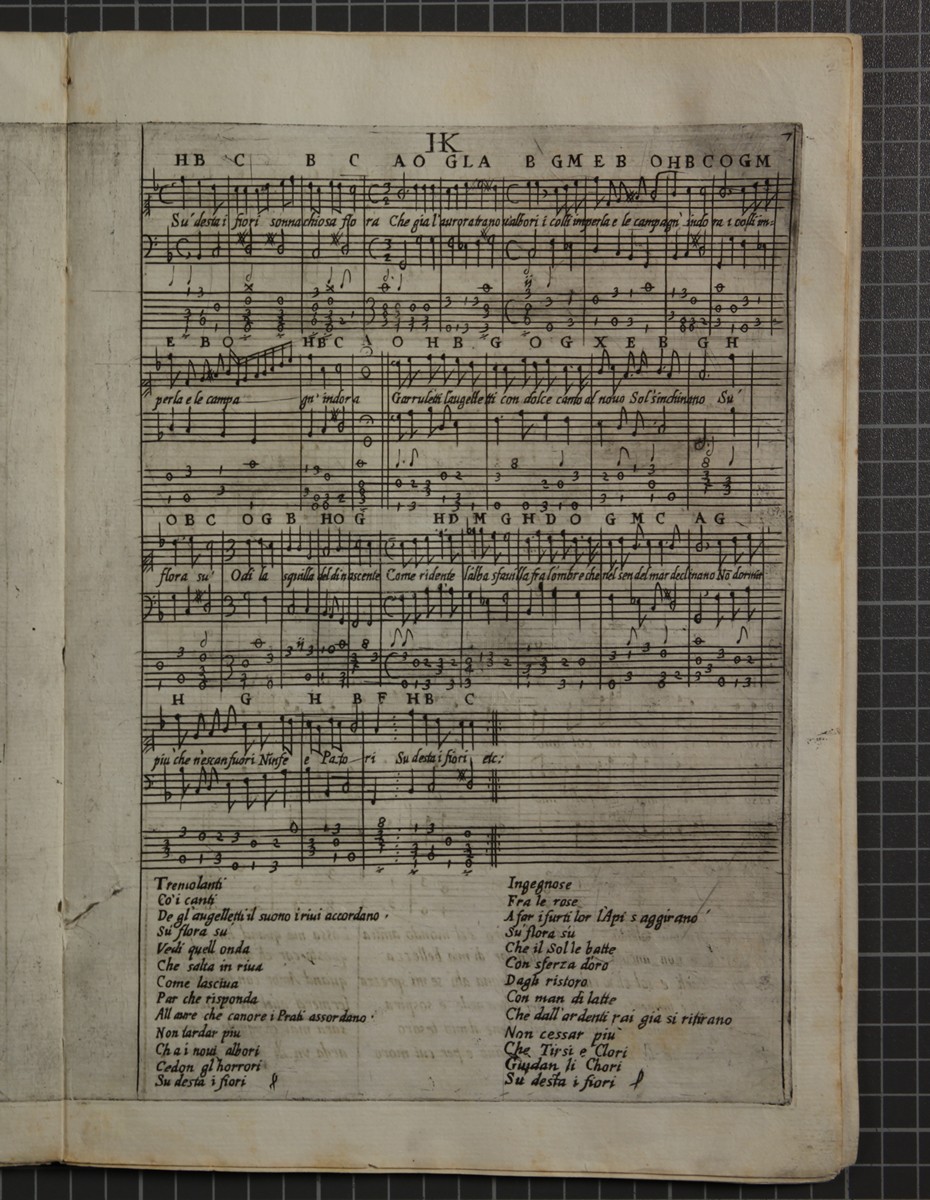 HK
7
H B C B C A O G L A B G M E B O H B C O G M
Su desta i fiori sonnachiosa flo ra Che gia l'aurora fra noui albori i colli imperla e le campagn' indo ra i colli im=
E B O H B C A O H B G O G X E B G H
perla e le campa gn' indora Garruletti l'augelletti con dolce canto al nouo Sol s'inchinano Su
O B C O G B H O G H D M G H D O G M C A G
flora su Odi la squilla del di nascente Come ridente l'alba sfauilla fra l'ombre che nel sen del mar declinano No dormir
H G H B F H B C
piu che n'escan fuori Ninfe e Pa.to ri Su desta i fiori etc:
Tremolanti
Co'i canti
De gl'augelletti il suono i riui accordano.
Su flora su
Vedi quell onda
Che salta in riua
Come lasciua
Par che risponda
All aure che canore i Prati assordano.
Non tardar piu
Ch a i noui albori
Cedon gl'horrori
Su desta i fiori
Ingegnose
Fra le rose
A far i furti lor l'Api s aggirano
Su flora su
Che il Sol le batte
Con sferza d'oro
Dagli ristoro
Con man di latte
Che dall'ardenti rai già si ritirano
Non cessar più
Che Tirsi e Clori
Guidan li Chori
Su desta i fiori